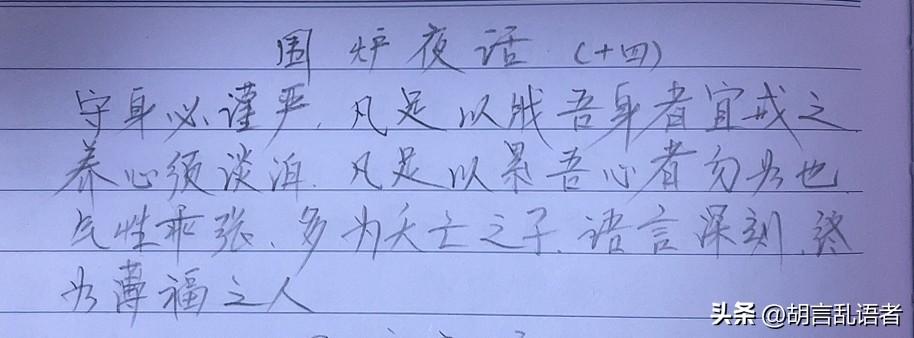 围炉夜话（十四）
守身必谨严，凡足以戕吾身者宜戒之
养心须淡泊，凡足以累吾心者勿为也
气性乖张、多为夭亡之子、语言深刻、终
为薄福之人
头条 @胡言乱语者